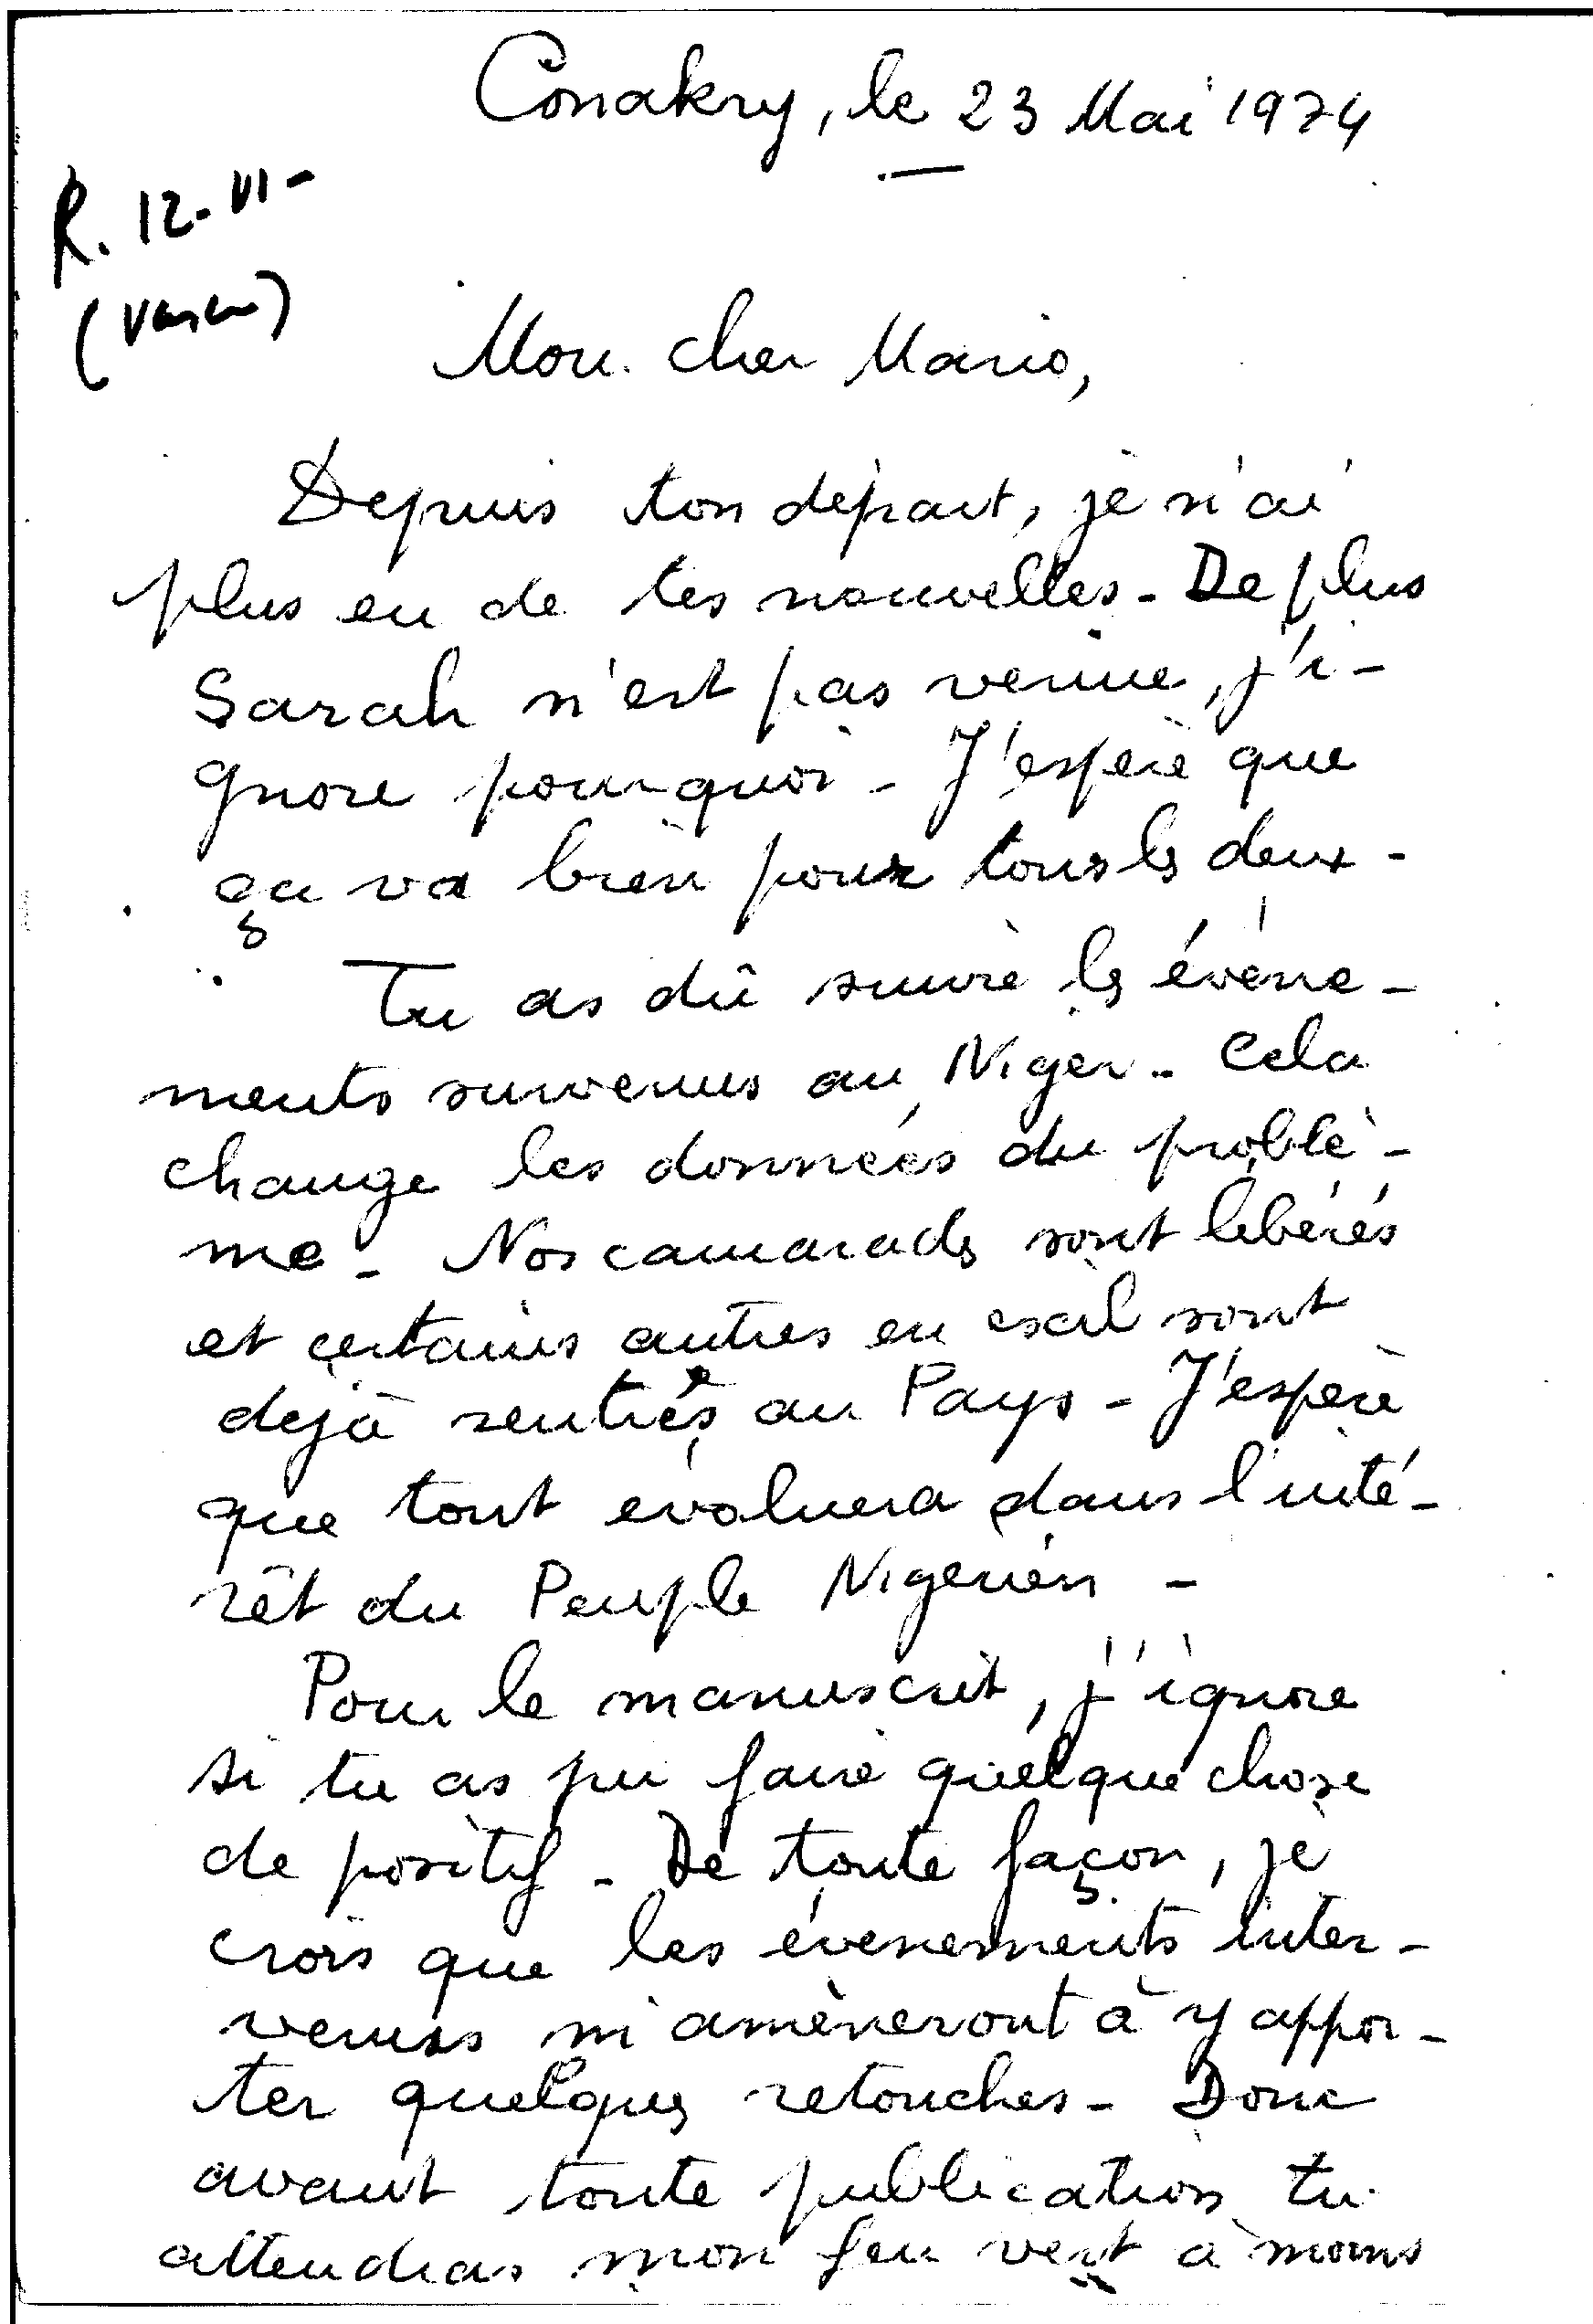 Conakry, le 23 Mai 1974
R. 12-VI-
Mon cher Mario,
Depuis ton départ, je n'ai
plus eu de tes nouvelles - De plus
Sarah n'est pas venue, j'i-
gnore pourquoi - J'espère que
ça va bien pour tous ls deux -
Tu as dû suivre ls événe-
ments survenus au Niger - Cela
change les données du problè-
me - Nos camarads sont libérés
et certains autres en exil sont
déjà rentrés au Pays - J'espère
que tout évoluera dans l'inté-
rêt du Peuple Nigérien -
Pour le manuscrit, j'ignore
si tu as pu faire quelque chose
de positif - De toute façon, je
crois que les événements inter-
venus m'amèneront à y appor-
ter quelques retouches - Donc
avant toute publication tu
attendras mon feu vert à moins